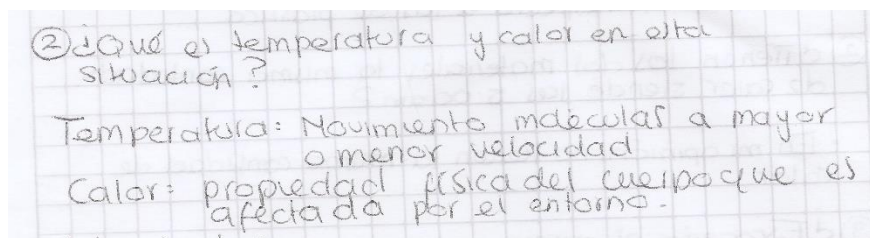 ② ¿Qué es temperatura y calor en esta
situación?
Temperatura: Movimiento moleculas a mayor
o menor velocidad
Calor: propiedad física del cuerpo que es
afectada por el entorno.